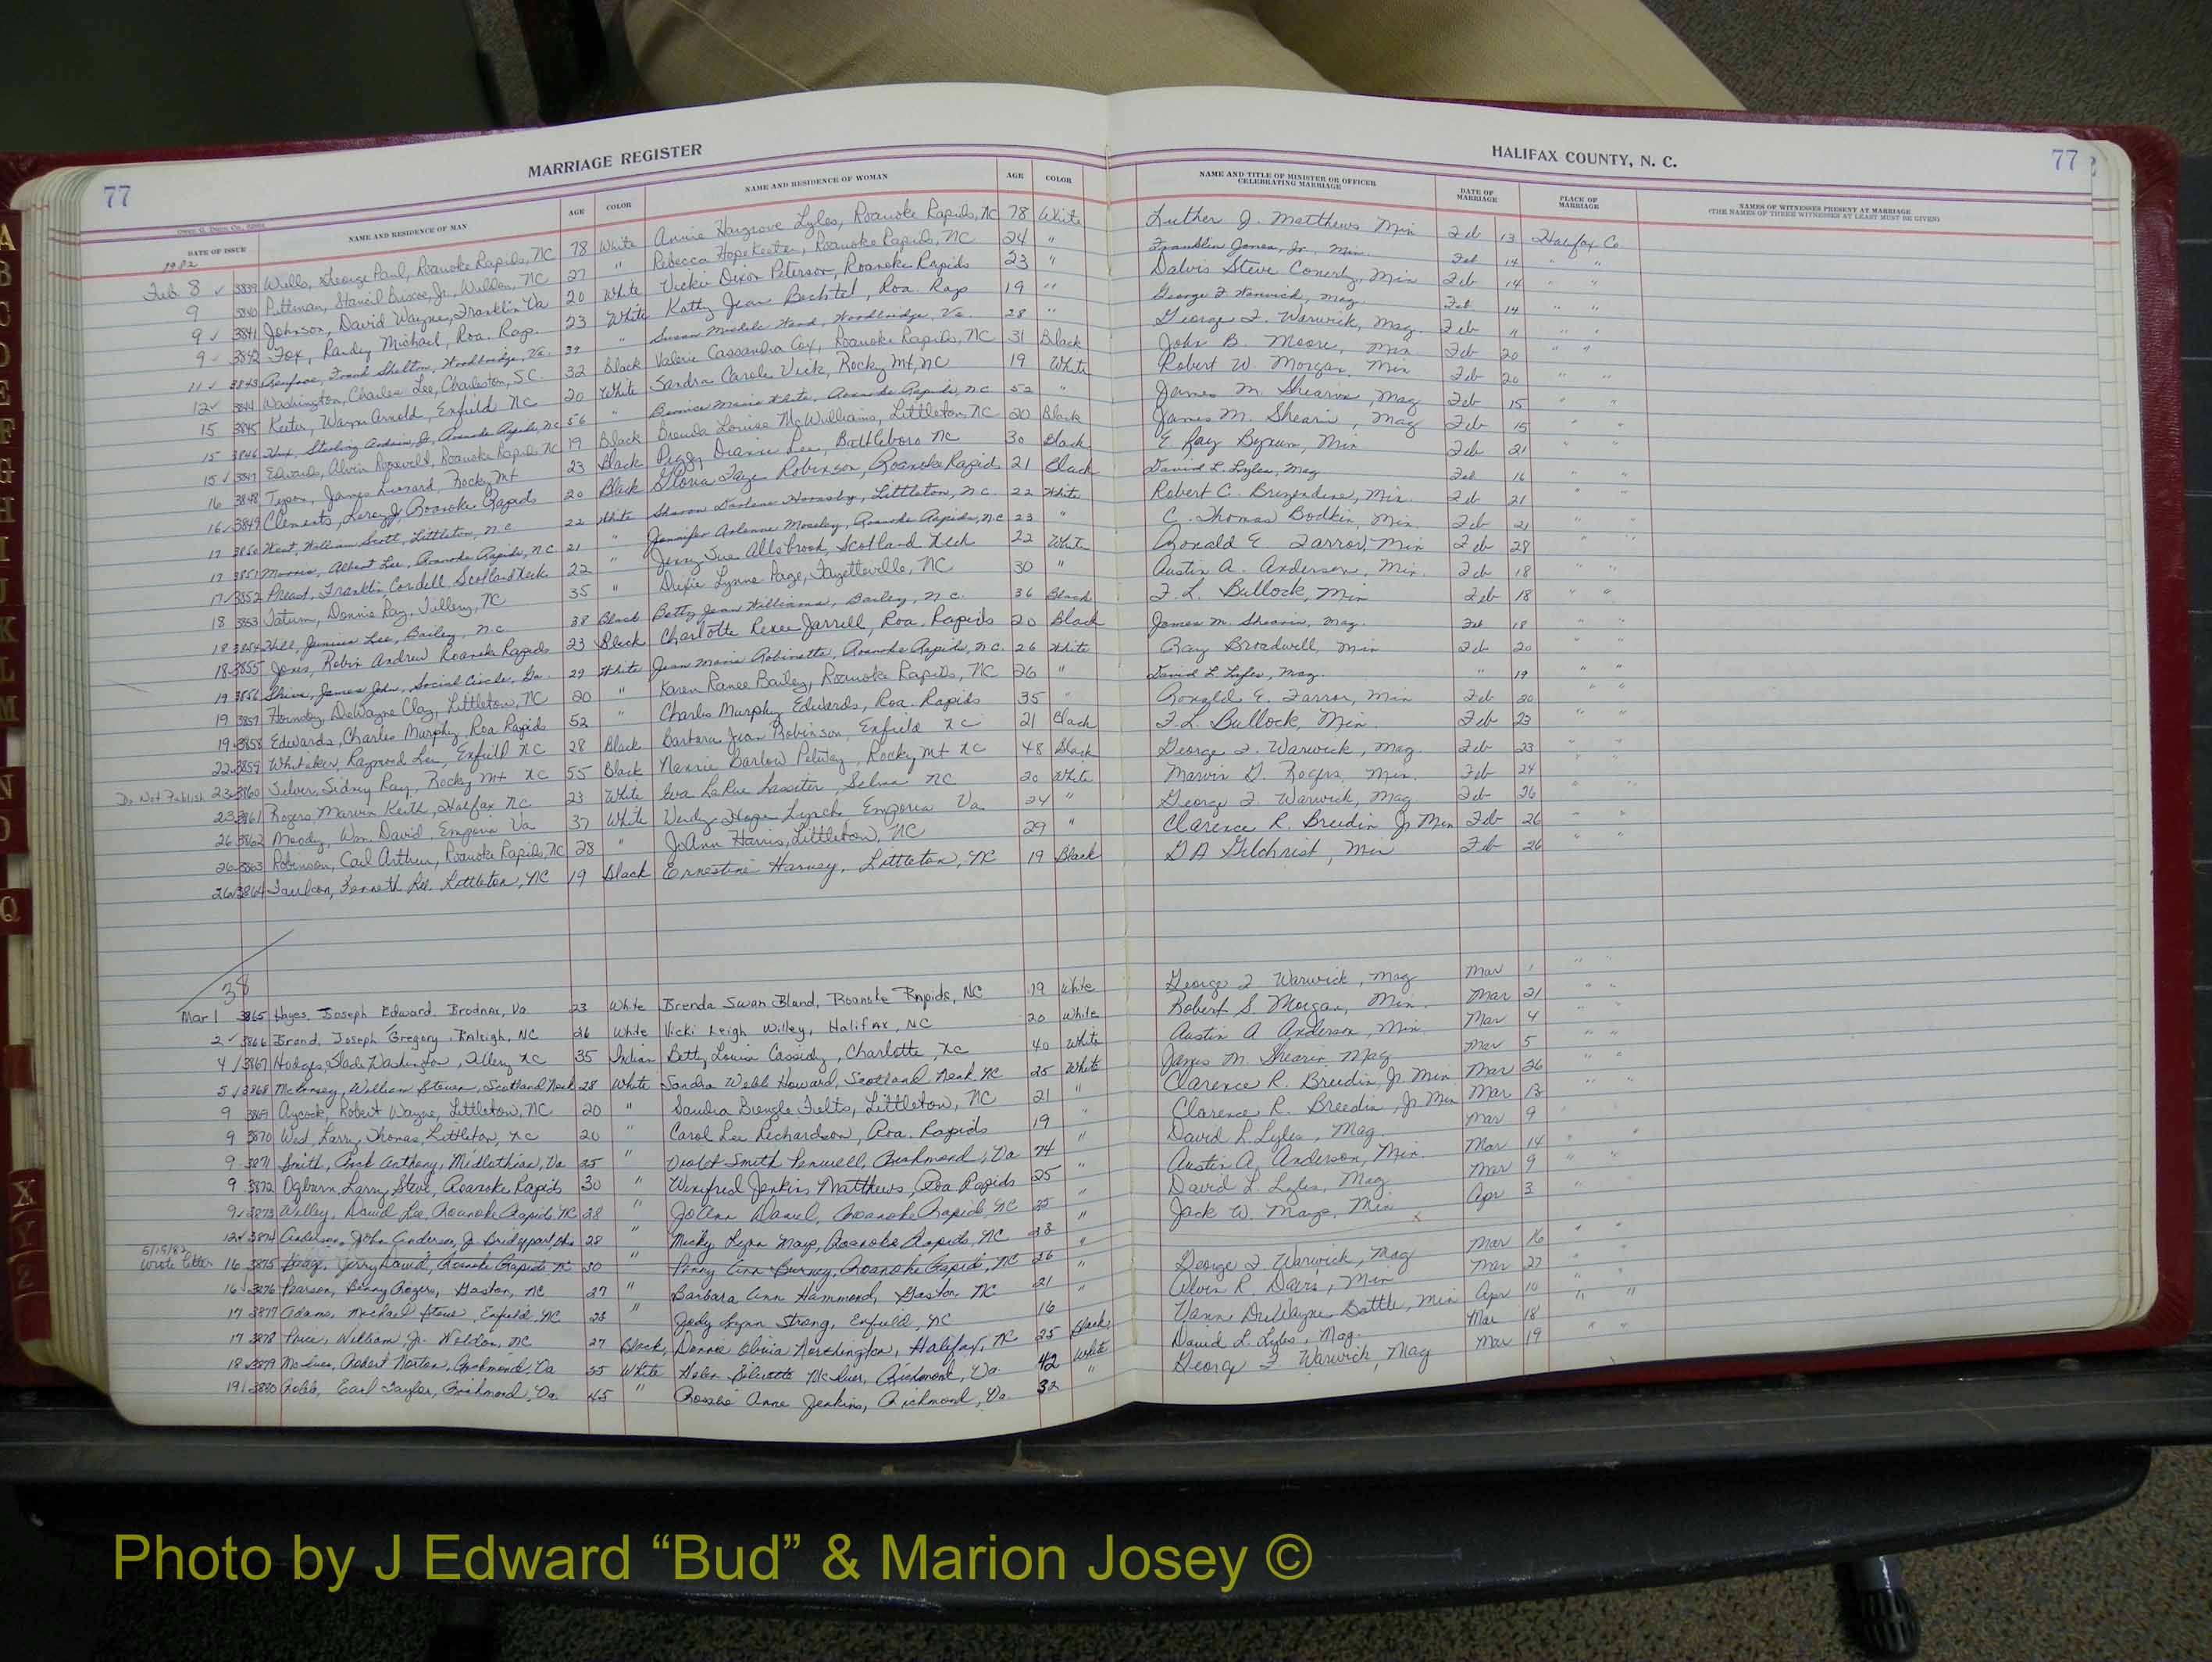 MARRIAGE REGISTER
HALIFAX COUNTY, N. C.
77
77
DATE OF ISSUE
NAME AND RESIDENCE OF MAN
AGE
COLOR
NAME AND RESIDENCE OF WOMAN
AGE
COLOR
NAME AND TITLE OF MINISTER OR OFFICER CELEBRATING MARRIAGE
DATE OF MARRIAGE
PLACE OF MARRIAGE
NAMES OF WITNESSES PRESENT AT MARRIAGE
(THE NAMES OF THREE WITNESSES AT LEAST MUST BE GIVEN)
1982
Feb. 8 ✓ 3839 Wells, George Paul, Roanoke Rapids, NC 78 White Annie Hargrove Lyles, Roanoke Rapids, NC 78 White Luther J. Matthews Min Feb 13 Halifax Co
9 3840 Pittman, Stancil Briscoe, Jr., Weldon, NC 27 " Rebecca Hope Keeter, Roanoke Rapids, NC 24 " Franklin Jones, Jr. Min. Feb 14 " "
9 ✓ 3841 Johnson, David Wayne, Franklin Va 20 White Vickie Dixon Peterson, Roanoke Rapids 23 " Dalvis Steve Conerly, Min Feb 14 " "
9 ✓ 3842 Fox, Randy Michael, Roa. Rap. 23 White Kathy Jean Bechtel, Roa. Rap 19 " George F. Warwick, Mag. Feb 14 " "
11 ✓ 3843 Renfroe, Frank Shelton, Woodbridge, Va. 39 " Susan Michele Hand, Woodbridge, Va. 28 " George F. Warwick, Mag. Feb 11 " "
12 ✓ 3844 Washington, Charles Lee, Charleston, S.C. 32 Black Valerie Cassandra Cox, Roanoke Rapids, NC 31 Black John B. Moore, Min Feb 20 " "
15 3845 Keeter, Wayne Arnold, Enfield NC 20 White Sandra Carole Vick, Rocky Mt, NC 19 White Robert W. Morgan, Min Feb 20 " "
15 3846 Hux, Sterling Jr, Roanoke Rapids, N.C. 56 " Bernice Marie White, Roanoke Rapids, N.C. 52 " James M. Shearin, Mag Feb 15 " "
15 ✓ 3847 Edwards, Alvin Roosevelt, Roanoke Rapids NC 19 Black Brenda Louise McWilliams, Littleton, NC 20 Black James M. Shearin, Mag Feb 15 " "
16 3848 Tyson, James Leonard, Rocky Mt 23 Black Peggy Dianne Lee, Battleboro NC 30 Black E. Ray Byrum, Min Feb 21 " "
16 ✓ 3849 Clements, Leroy Jr, Roanoke Rapids 20 Black Gloria Faye Robinson, Roanoke Rapids 21 Black David L. Lyles, Mag Feb 16 " "
17 3850 West, William Scott, Littleton, N.C. 22 White Sharon Darlene Hornsby, Littleton, N.C. 22 White Robert C. Brizendine, Min. Feb 21 " "
17 3851 Morris, Albert Lee, Roanoke Rapids, N.C. 21 " Jennifer Arlenne Moseley, Roanoke Rapids, N.C. 23 " C. Thomas Bodkin, Min. Feb 21 " "
17 ✓ 3852 Franklin Cordell Scotland Neck 22 " Jenny Sue Allsbrook, Scotland Neck 22 White Ronald E Farror, Min Feb 28 " "
18 3853 Tatum, Donnie Ray, Tillery, NC 35 " Dixie Lynne Page, Fayetteville, NC 30 " Austin A. Anderson, Min. Feb 18 " "
18 3854 Hill, Lee, Bailey, N.C. 38 Black Betty Jean Williams, Bailey, N.C. 36 Black F. L. Bullock, Min Feb 18 " "
18 3855 Jones, Robin Andrew Roanoke Rapids 23 Black Charlotte Renee Jarrell, Roa. Rapids 20 Black James M. Shearin, Mag. Feb 18 " "
19 3856 Shive, James John, Social Circle, Ga. 29 White Jean Marie Robinette, Roanoke Rapids, N.C. 26 White Ray Broadwell, Min Feb 20 " "
19 3857 Hornsby, DeWayne Clay, Littleton, NC 20 " Karen Renee Bailey, Roanoke Rapids, NC 26 " David L. Lyles, Mag. " 19 " "
19 3858 Edwards, Charles Murphy, Roa Rapids 52 " Charles Murphy Edwards, Roa Rapids 35 " Ronald E. Farror, Min Feb 20 " "
22 3859 Whitaker, Raymond Lee, Enfield NC 28 Black Barbara Jean Robinson, Enfield NC 21 Black F. L. Bullock, Min. Feb 23 " "
Do Not Publish 23 3860 Silver, Sidney Ray, Rocky Mt NC 55 Black Nannie Barlow Pitway, Rocky Mt NC 48 Black George F. Warwick, Mag. Feb 23 " "
23 3861 Rogers, Marvin Keith, Halifax NC 23 White Eva LaRue Lassiter, Selma NC 20 White Marvin G. Rogers, Min. Feb 24 " "
26 3862 Moody, Wm. David, Emporia Va 37 White Wendy Lynch, Emporia Va 24 " George F. Warwick, Mag Feb 26 " "
26 3863 Robinson, Carl Arthur, Roanoke Rapids, NC 28 " JoAnn Harris, Littleton, NC 29 " Clarence R. Breedin Jr Min Feb 26 " "
26 3864 Faulcon, Kenneth Lee, Littleton, NC 19 Black Ernestine Harvey, Littleton, NC 19 Black G A Gilchrist, Min Feb 26 " "
38
Mar 1 3865 Hayes, Joseph Edward, Brodnax, Va 23 White Brenda Swan Bland, Roanoke Rapids, NC 19 White George F Warwick, Mag Mar 1 " "
2 ✓ 3866 Brand, Joseph Gregory, Raleigh, NC 26 White Vicki Leigh Willey, Halifax, NC 20 White Robert S. Morgan, Min. Mar 21
4 / 3867 Hodges, Slade Washington, NC 35 Indian Betty Louise Cassidy, Charlotte, NC 40 White Austin A Anderson, Min. Mar 4 " "
5 / 3868 William Steven, Scotland Neck 28 White Sandra Webb Howard, Scotland Neck NC 25 White James M Shearin Mag Mar 5
9 3869 Aycock, Robert Wayne, Littleton, NC 20 " Sandra Felts, Littleton, NC 21 " Clarence R. Breedin, Jr. Min Mar 26
9 3870 Larry Thomas, Littleton, NC 20 " Carol Lee Richardson, Roa. Rapids 19 " Clarence R. Breedin, Jr Min Mar 13
9 3871 Smith, Anthony, Midlothian, Va 25 " Violet Smith Richmond, Va 24 " David L. Lyles, Mag. Mar 9
9 3872 Ogburn, Larry Steve, Roanoke Rapids 30 " Winifred Jenkins Matthews, Roa Rapids 25 " Austin A. Anderson, Min. Mar 14
9 3873 Willey, David Lee, Roanoke Rapids, NC 28 " JoAnn Daniel, Roanoke Rapids, NC 25 " David L. Lyles, Mag Mar 9
12 3874 Anderson, John Anderson, Jr. Bridgeport, 28 " Micky Lynn Mays, Roanoke Rapids, NC 23 " Jack W. Mays, Min Apr 3
5/19/82 wrote letter 16 3875 Jerry David, Roanoke Rapids NC 30 " Penny Ann Burney, Roanoke Rapids, NC 26 "
16 3876 Pearson, Benny Rogers, Gaston, NC 27 " Barbara Ann Hammond, Gaston NC 21 " George F. Warwick, Mag Mar 16
17 3877 Adams, Michael Steve, Enfield, NC 23 " Jody Lynn Strong, Enfield, NC 16 Alvin R. Davis, Min Mar 27
17 3878 Price, William Jr. Weldon, NC 27 Black Donnie Olivia Northington, Halifax, NC 25 Black Vann DuWayne Battle, Min Apr 10 " "
18 3879 Robert Norton, Richmond, Va 55 White Helen Richmond, Va 42 White David L. Lyles, Mag. Mar 18
19 3880 Robb, Earl Taylor, Richmond, Va 45 " Rosalie Anne Jenkins, Richmond, Va. 32 " George F Warwick, Mag Mar 19
A
B
C
D
E
F
G
H
I
J
K
L
M
N
O
Q
X
Y
Z
Photo by J Edward “Bud” & Marion Josey ©